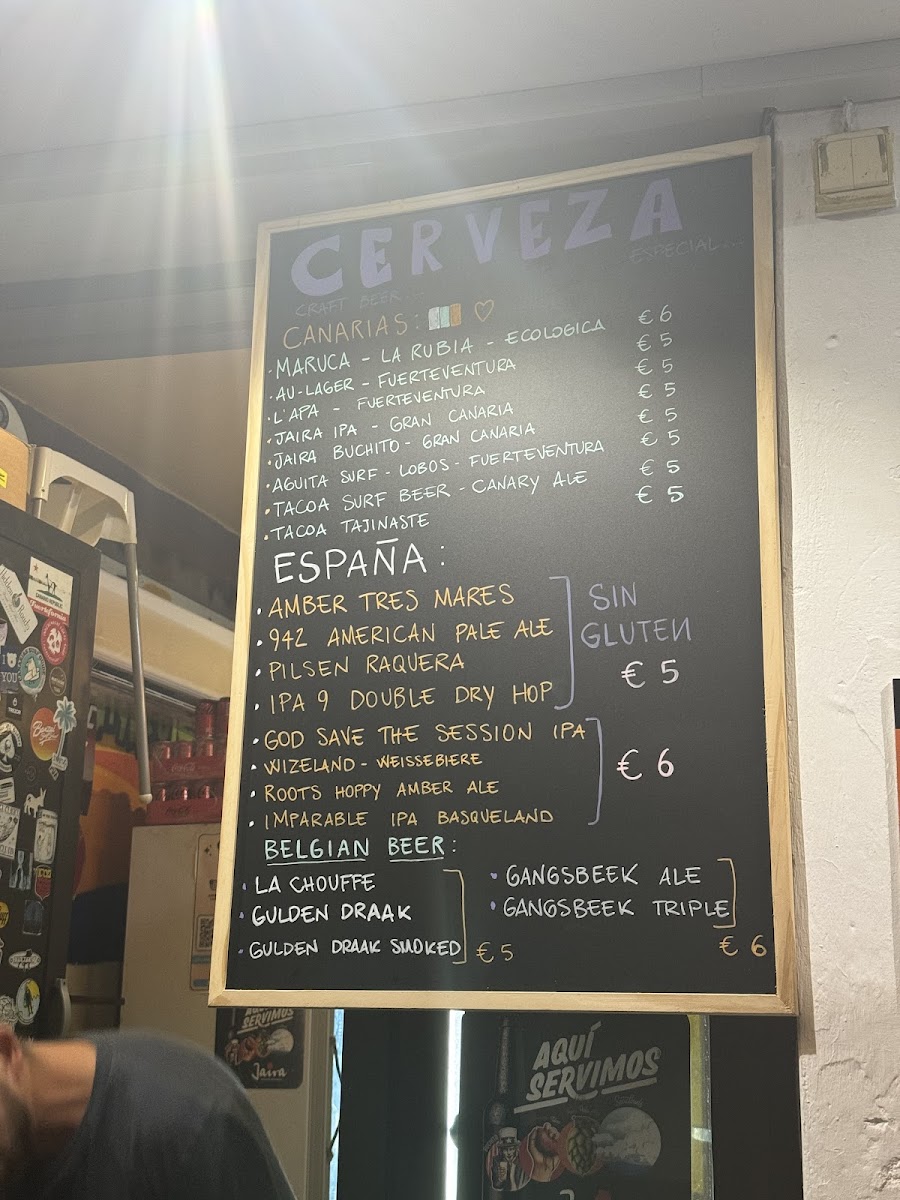 CERVEZA
ESPECIAL...
CRAFT BEER...
CANARIAS:
· MARUCA - LA RUBIA - ECOLOGICA € 6
· AU-LAGER - FUERTEVENTURA € 5
· L'APA - FUERTEVENTURA € 5
· JAIRA IPA - GRAN CANARIA € 5
· JAIRA BUCHITO - GRAN CANARIA € 5
· AGUITA SURF - LOBOS - FUERTEVENTURA € 5
· TACOA SURF BEER - CANARY ALE € 5
· TACOA TAJINASTE € 5
ESPAÑA:
· AMBER TRES MARES
· 942 AMERICAN PALE ALE
· PILSEN RAQUERA
· IPA 9 DOUBLE DRY HOP
SIN
GLUTEN
€ 5
· GOD SAVE THE SESSION IPA
· WIZELAND - WEISSEBIERE
· ROOTS HOPPY AMBER ALE
· IMPARABLE IPA BASQUELAND
€ 6
BELGIAN BEER:
· LA CHOUFFE
· GULDEN DRAAK
· GULDEN DRAAK SMOKED € 5
· GANGSBEEK ALE
· GANGSBEEK TRIPLE
€ 6
AQUÍ
SERVIMOS
Jaira
AQUÍ
SERVIMOS